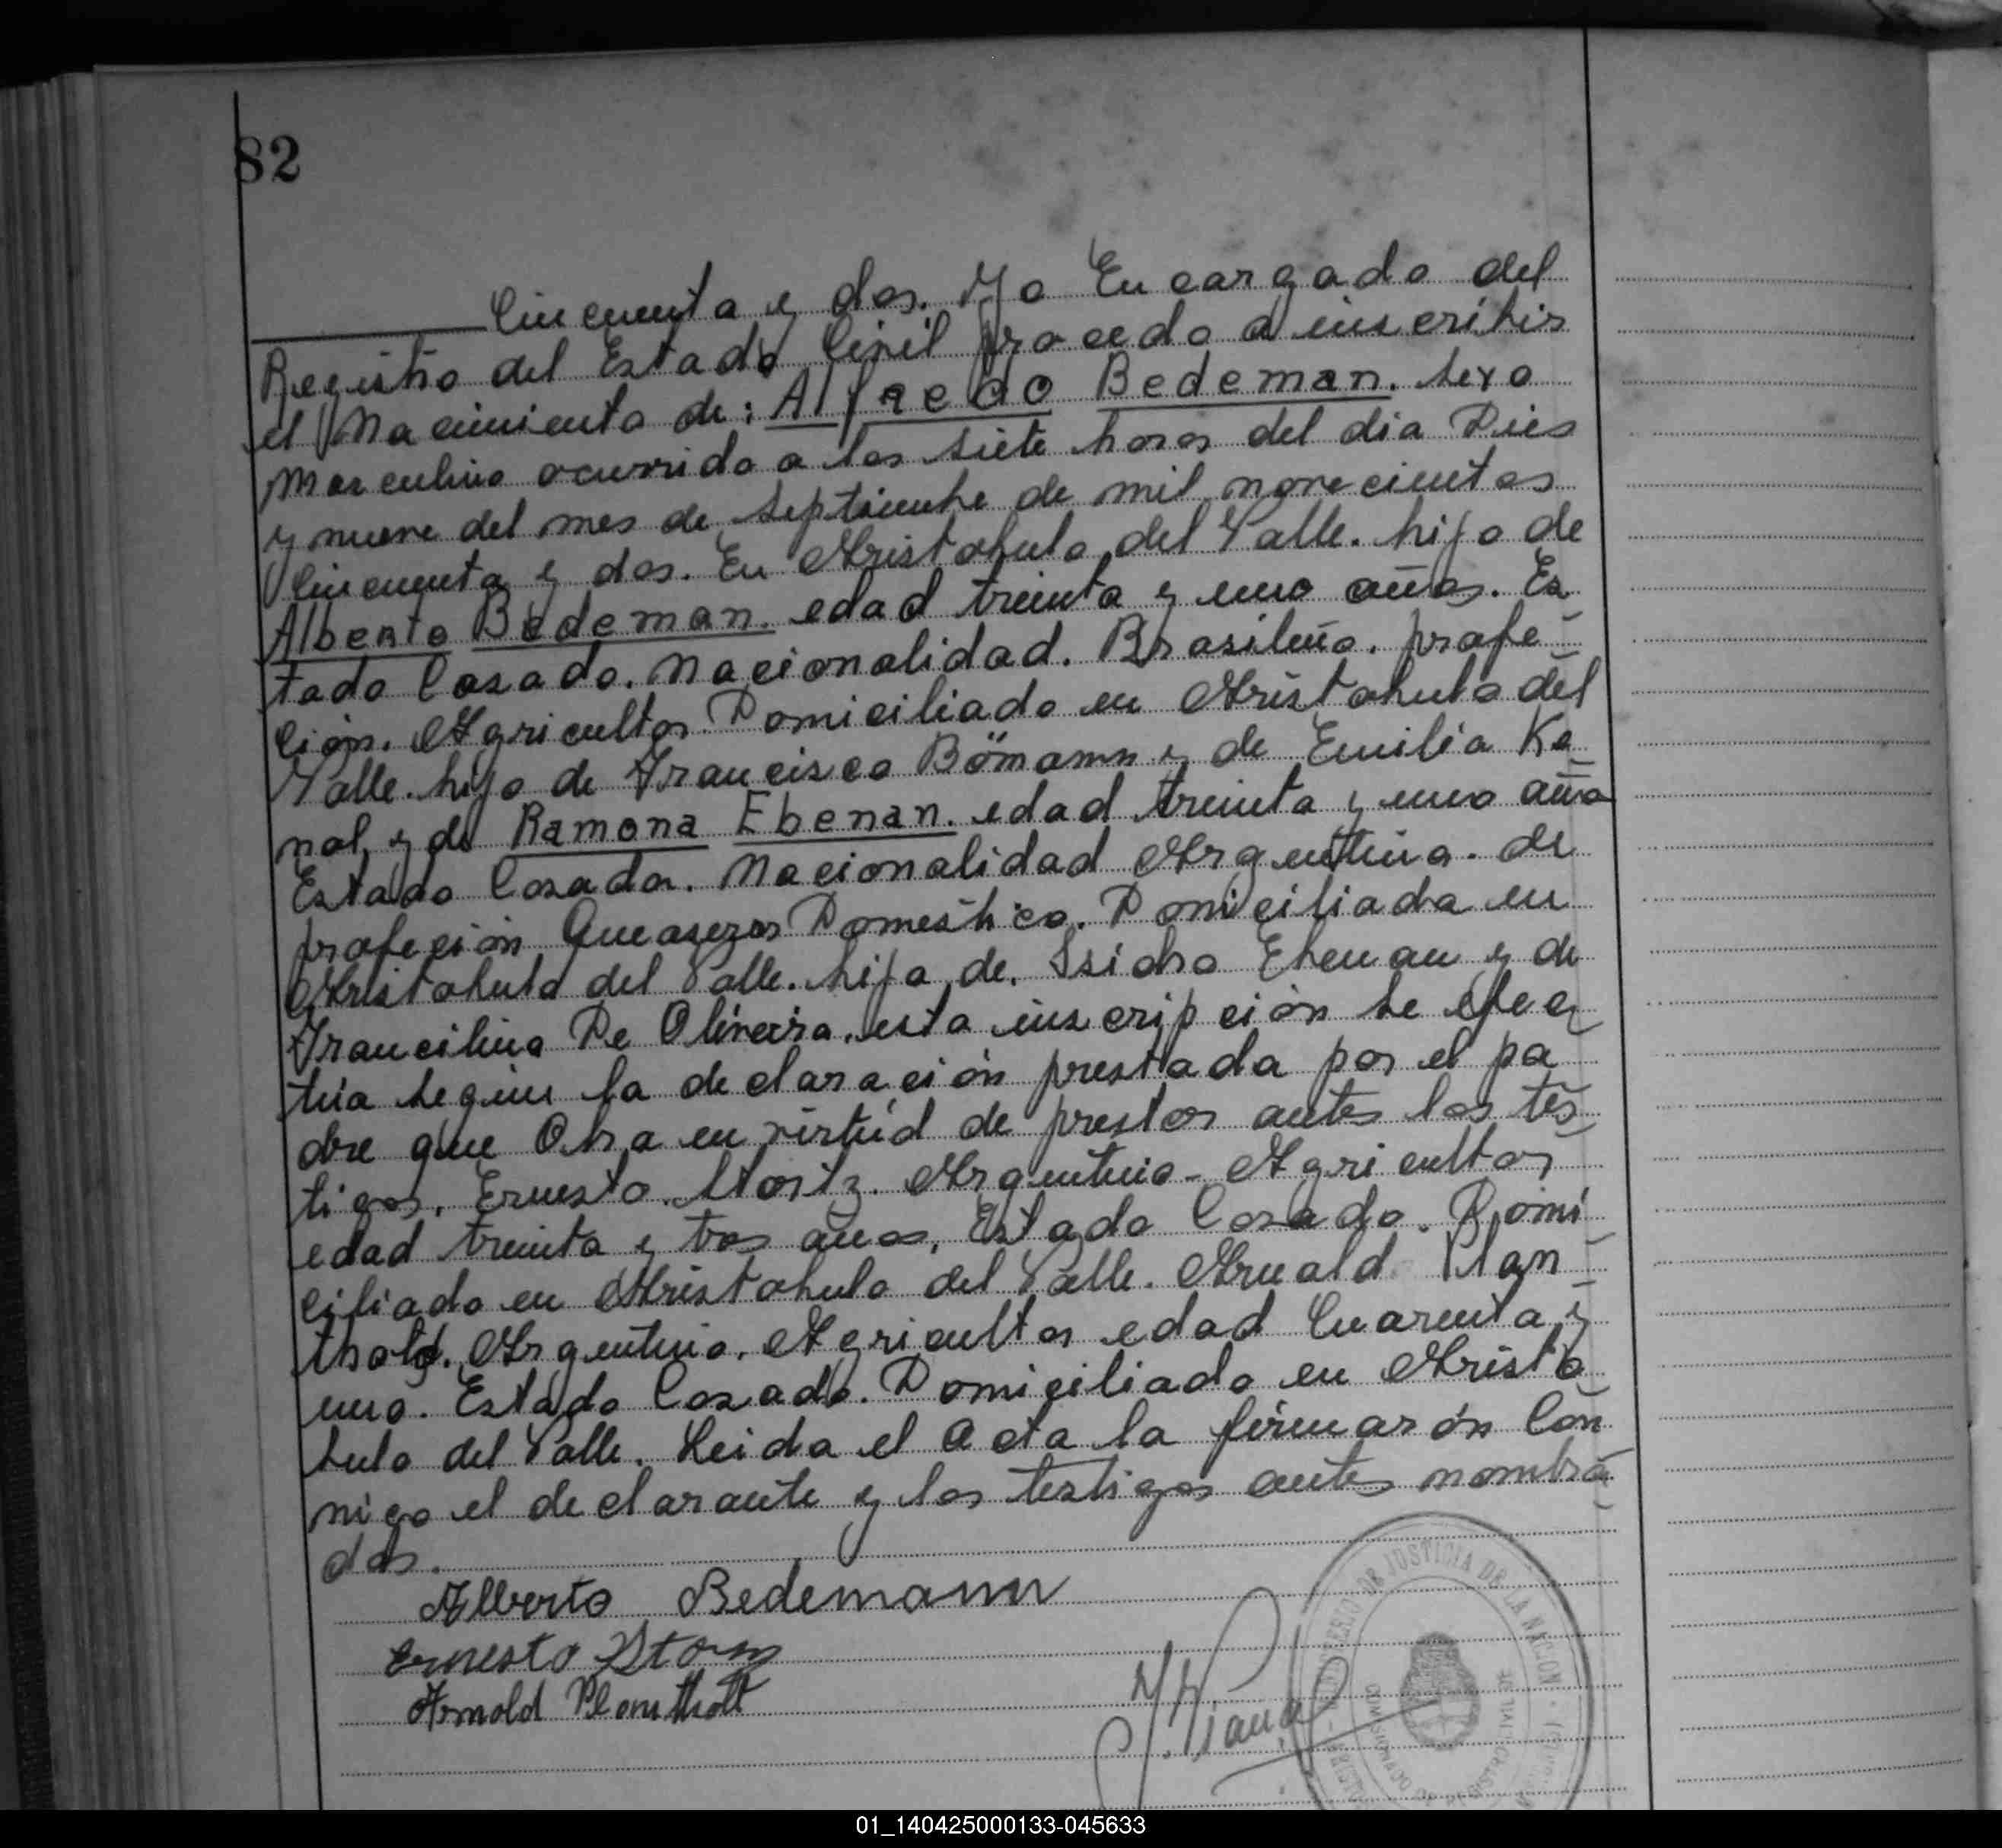 82
Cincuenta y dos. Yo Encargado del
Registro del Estado Civil procedo a inscribir
el Nacimiento de: Alfredo Bedeman. sexo
Masculino ocurrido a las siete horas del dia Dies
y nueve del mes de septiembre de mil novecientos
Cincuenta y dos. En Aristobulo del Valle. hijo de
Alberto Bedeman. edad treinta y uno años. Es
tado Casado. Nacionalidad. Brasileño. profe-
ción. Agricultor. Domiciliado en Aristobulo del
Valle. hijo de Francisco Bömann y de Emilia Ka
nal, y de Ramona Ebenan. edad treinta y uno año
Estado Casada. Nacionalidad Argentina. de
profeción Queaseres Domestico. Domiciliada en
Aristobulo del Valle. hija de. Isidro Ebenau y de
Francilina De Oliveira. esta inscripción se efec
tua según la declaración prestada por el pa
dre que Obra en virtud de prestar antes los tes
tigos. Ernesto Argentino - Agricultor
edad treinta y tres años, Estado Casado. Domi-
ciliado en Aristobulo del Valle. Arnald Plan-
thold. Argentino. Agricultor edad Cuarenta y
uno. Estado Casado. Domiciliado en Aristo
bulo del Valle. Leida el acta la firmarón Con
migo el declarante y los testigos antes nombra
dos.
Alberto Bedemann
Ernesto
Arnold Plantholt
DE JUSTICIA DE LA NACION
01_140425000133-045633